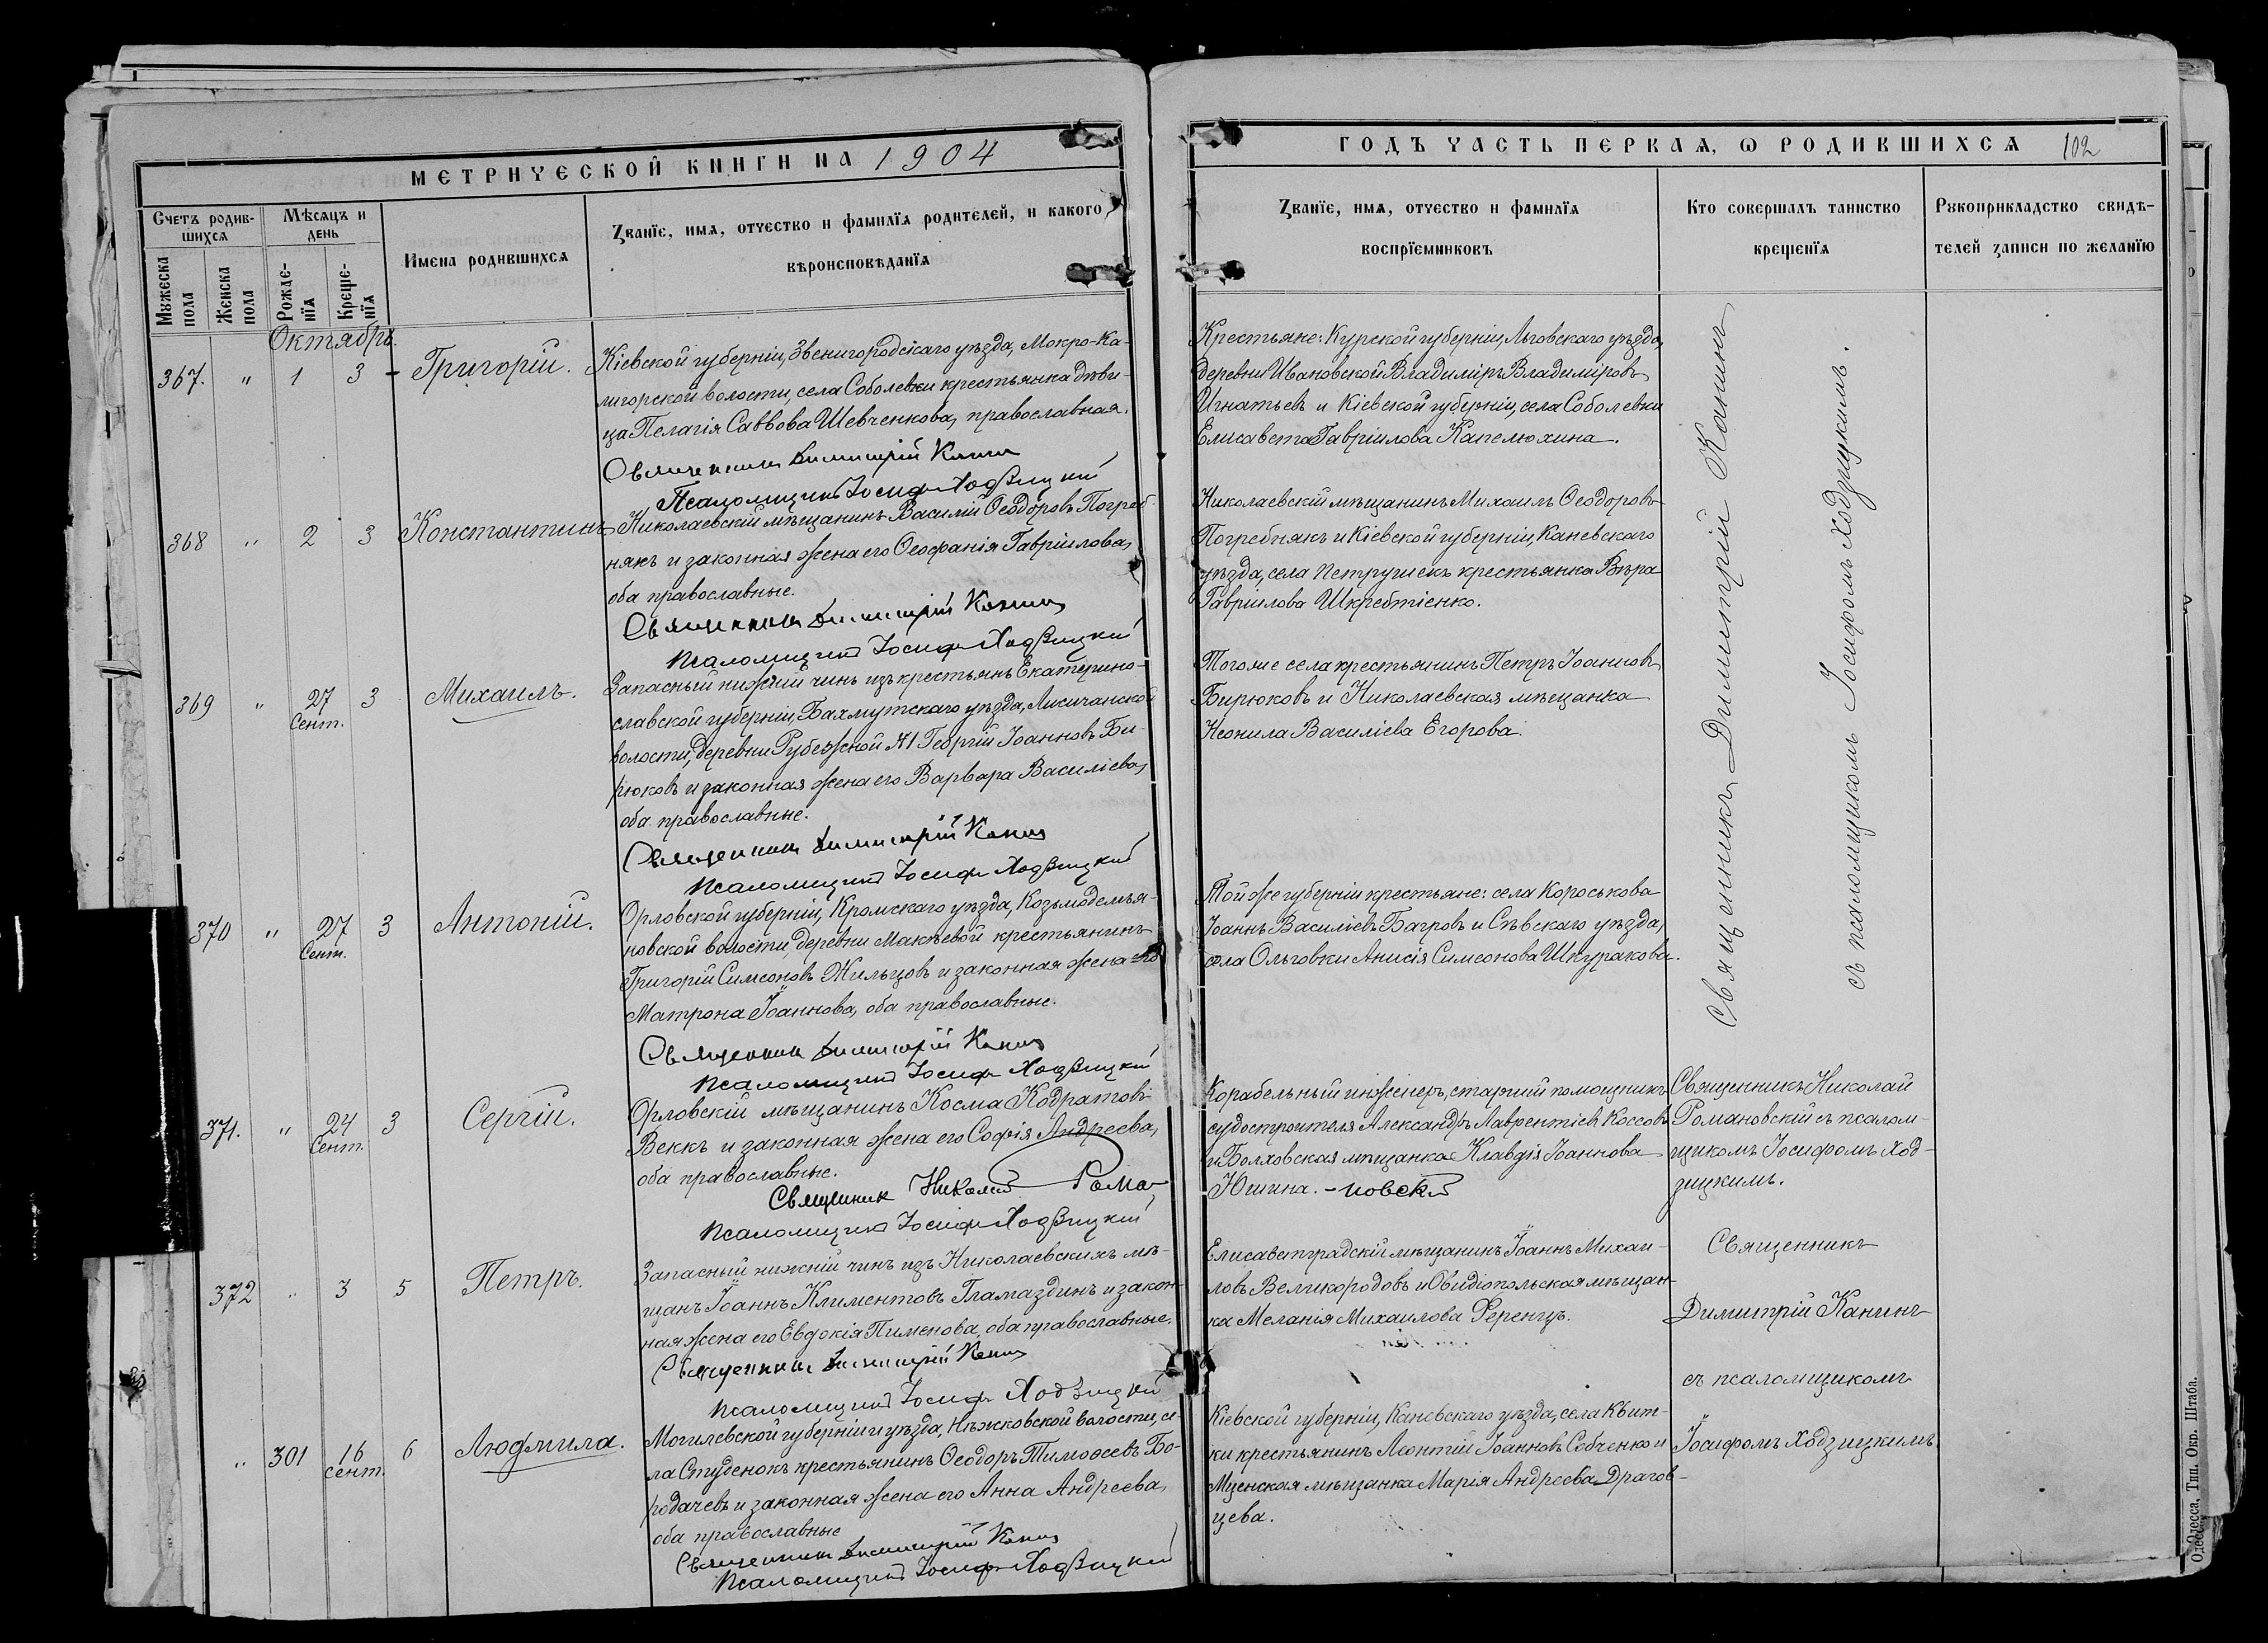 МЕТРИЧЕСКОЙ КНИГИ НА 1904
Счетъ родив-
шихся
Мѣсяцъ и
день
Мужеска
пола
Женска
пола
Рожде-
нїя
Креще-
нїя
Имена родившихся
Званїе, имя, отчество и фамилїя родителей, и какого
вѣроисповѣданїя
Октябрь.
367. " 1 3 - Григорій.
Кіевской губерніи, Звенигородскаго уѣзда, Мокро-Ка-
лигорской волости, села Соболевки крестьянка дѣви-
ца Пелагія Саввова Шевченкова, православная.
Священникъ Димитрій Канинъ
Псаломщикъ Іосифъ Ходзицкій
368 " 2 3 Константинъ
Николаевскій мѣщанинъ Василій Ѳеодоровъ Погреб-
някъ и законная жена его Ѳеофанія Гавріилова,
оба православные.
Священникъ Димитрій Канинъ
Псаломщикъ Іосифъ Ходзицкій
369 " 27 Сент. 3 Михаилъ.
Запасный нижній чинъ изъ крестьянъ Екатерино-
славской губерніи, Бахмутскаго уѣзда, Лисичанской
волости, деревни Рубежной №1 Георгій Іоанновъ Би-
рюковъ и законная жена его Варвара Василіева,
оба православные.
Священникъ Димитрій Канинъ
Псаломщикъ Іосифъ Ходзицкій
370 " 27 Сент. 3 Антоній.
Орловской губерніи, Кромскаго уѣзда, Козьмодемья-
новской волости, деревни Макѣевой крестьянинъ
Григорій Симеоновъ Жильцовъ и законная жена его
Матрона Іоаннова, оба православные.
Священникъ Димитрій Канинъ
Псаломщикъ Іосифъ Ходзицкій
371. " 24 Сент. 3 Сергій.
Орловскій мѣщанинъ Косма Кодратовъ
Веккъ и законная жена его Софія Андреева,
оба православные.
Священник Николай Рома-
Псаломщикъ Іосифъ Ходзицкій
372 " 3 5 Петръ.
Запасный нижній чинъ изъ Николаевскихъ мѣ-
щанъ Іоаннъ Климентовъ Гламаздинъ и закон-
ная жена его Евдокія Пименова, оба православные.
Священникъ Димитрій Канинъ
Псаломщикъ Іосифъ Ходзицкій
" 301 16 сент. 6 Людмила.
Могилевской губерніи и уѣзда, Нѣжковской волости, се-
ла Студенокъ крестьянинъ Ѳеодоръ Тимоѳеевъ Бо-
родачевъ и законная жена его Анна Андреева,
оба православные
Священникъ Димитрій Канинъ
Псаломщикъ Іосифъ Ходзицкій
ГОДЪ ЧАСТЬ ПЕРВАЯ, Ѡ РОДИВШИХСЯ 102
Званїе, имя, отчество и фамилїя
воспрїемниковъ
Кто совершалъ таинство
крещенїя
Рукоприкладство свидѣ-
телей записи по желанїю
Крестьяне: Курской губерніи, Льговскаго уѣзда,
деревни Ивановской Владиміръ Владиміровъ
Игнатьевъ и Кіевской губерніи, села Соболевки
Елисавета Гавріилова Капелюхина.
Николаевскій мѣщанинъ Михаилъ Ѳеодоровъ
Погребнякъ и Кіевской губерніи, Каневскаго
уѣзда, села Петрушекъ крестьянка Вѣра
Гавріилова Шкребтіенко.
Тогоже села крестьянинъ Петръ Іоанновъ
Бирюковъ и Николаевская мѣщанка
Неонила Василіева Егорова.
Той же губерніи крестьяне: села Короськова
Іоаннъ Василіевъ Багровъ и Сѣвскаго уѣзда,
села Ольговки Анисія Симеонова Шкуракова.
Священникъ Димитрій Канинъ
съ псаломщикомъ Іосифомъ Ходзицкимъ.
Корабельный инженеръ, старшій помощникъ
судостроителя Александръ Лаврентіевъ Коссовъ
и Болховская мѣщанка Клавдія Іоаннова
Юшина. -новскій
Священникъ Николай
Романовскій съ псалом-
щикомъ Іосифомъ Ход-
зицкимъ.
Елисаветградскій мѣщанинъ Іоаннъ Михаи-
ловъ Великородовъ и Овидіопольская мѣщан-
ка Меланія Михаилова Ференцъ.
Священникъ
Димитрій Канинъ
съ псаломщикомъ
Іосифомъ Ходзицкимъ.
Кіевской губерніи, Каневскаго уѣзда, села Квит-
ки крестьянинъ Леонтій Іоанновъ Собченко и
Мценская мѣщанка Марія Андреева Драгов-
цева.
Одесса, Тип. Окр. Штаба.